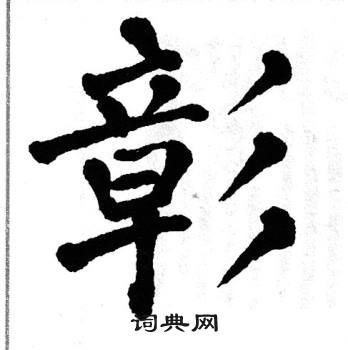 彰
词典网